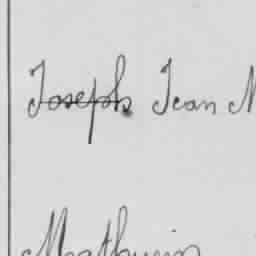 Joseph Jean M
Mathurin